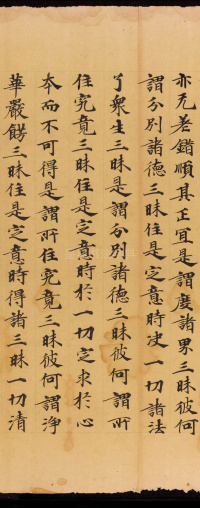 亦无差錯順其正宜是謂度諸界三昧彼何
謂分別諸德三昧住是定意時使一切諸法
了衆生三昧是謂分別諸德三昧彼何謂所
住究竟三昧住是定意時於一切定求於心
本而不可得是謂所住究竟三昧彼何謂淨
華嚴餝三昧住是定意時得諸三昧一切清